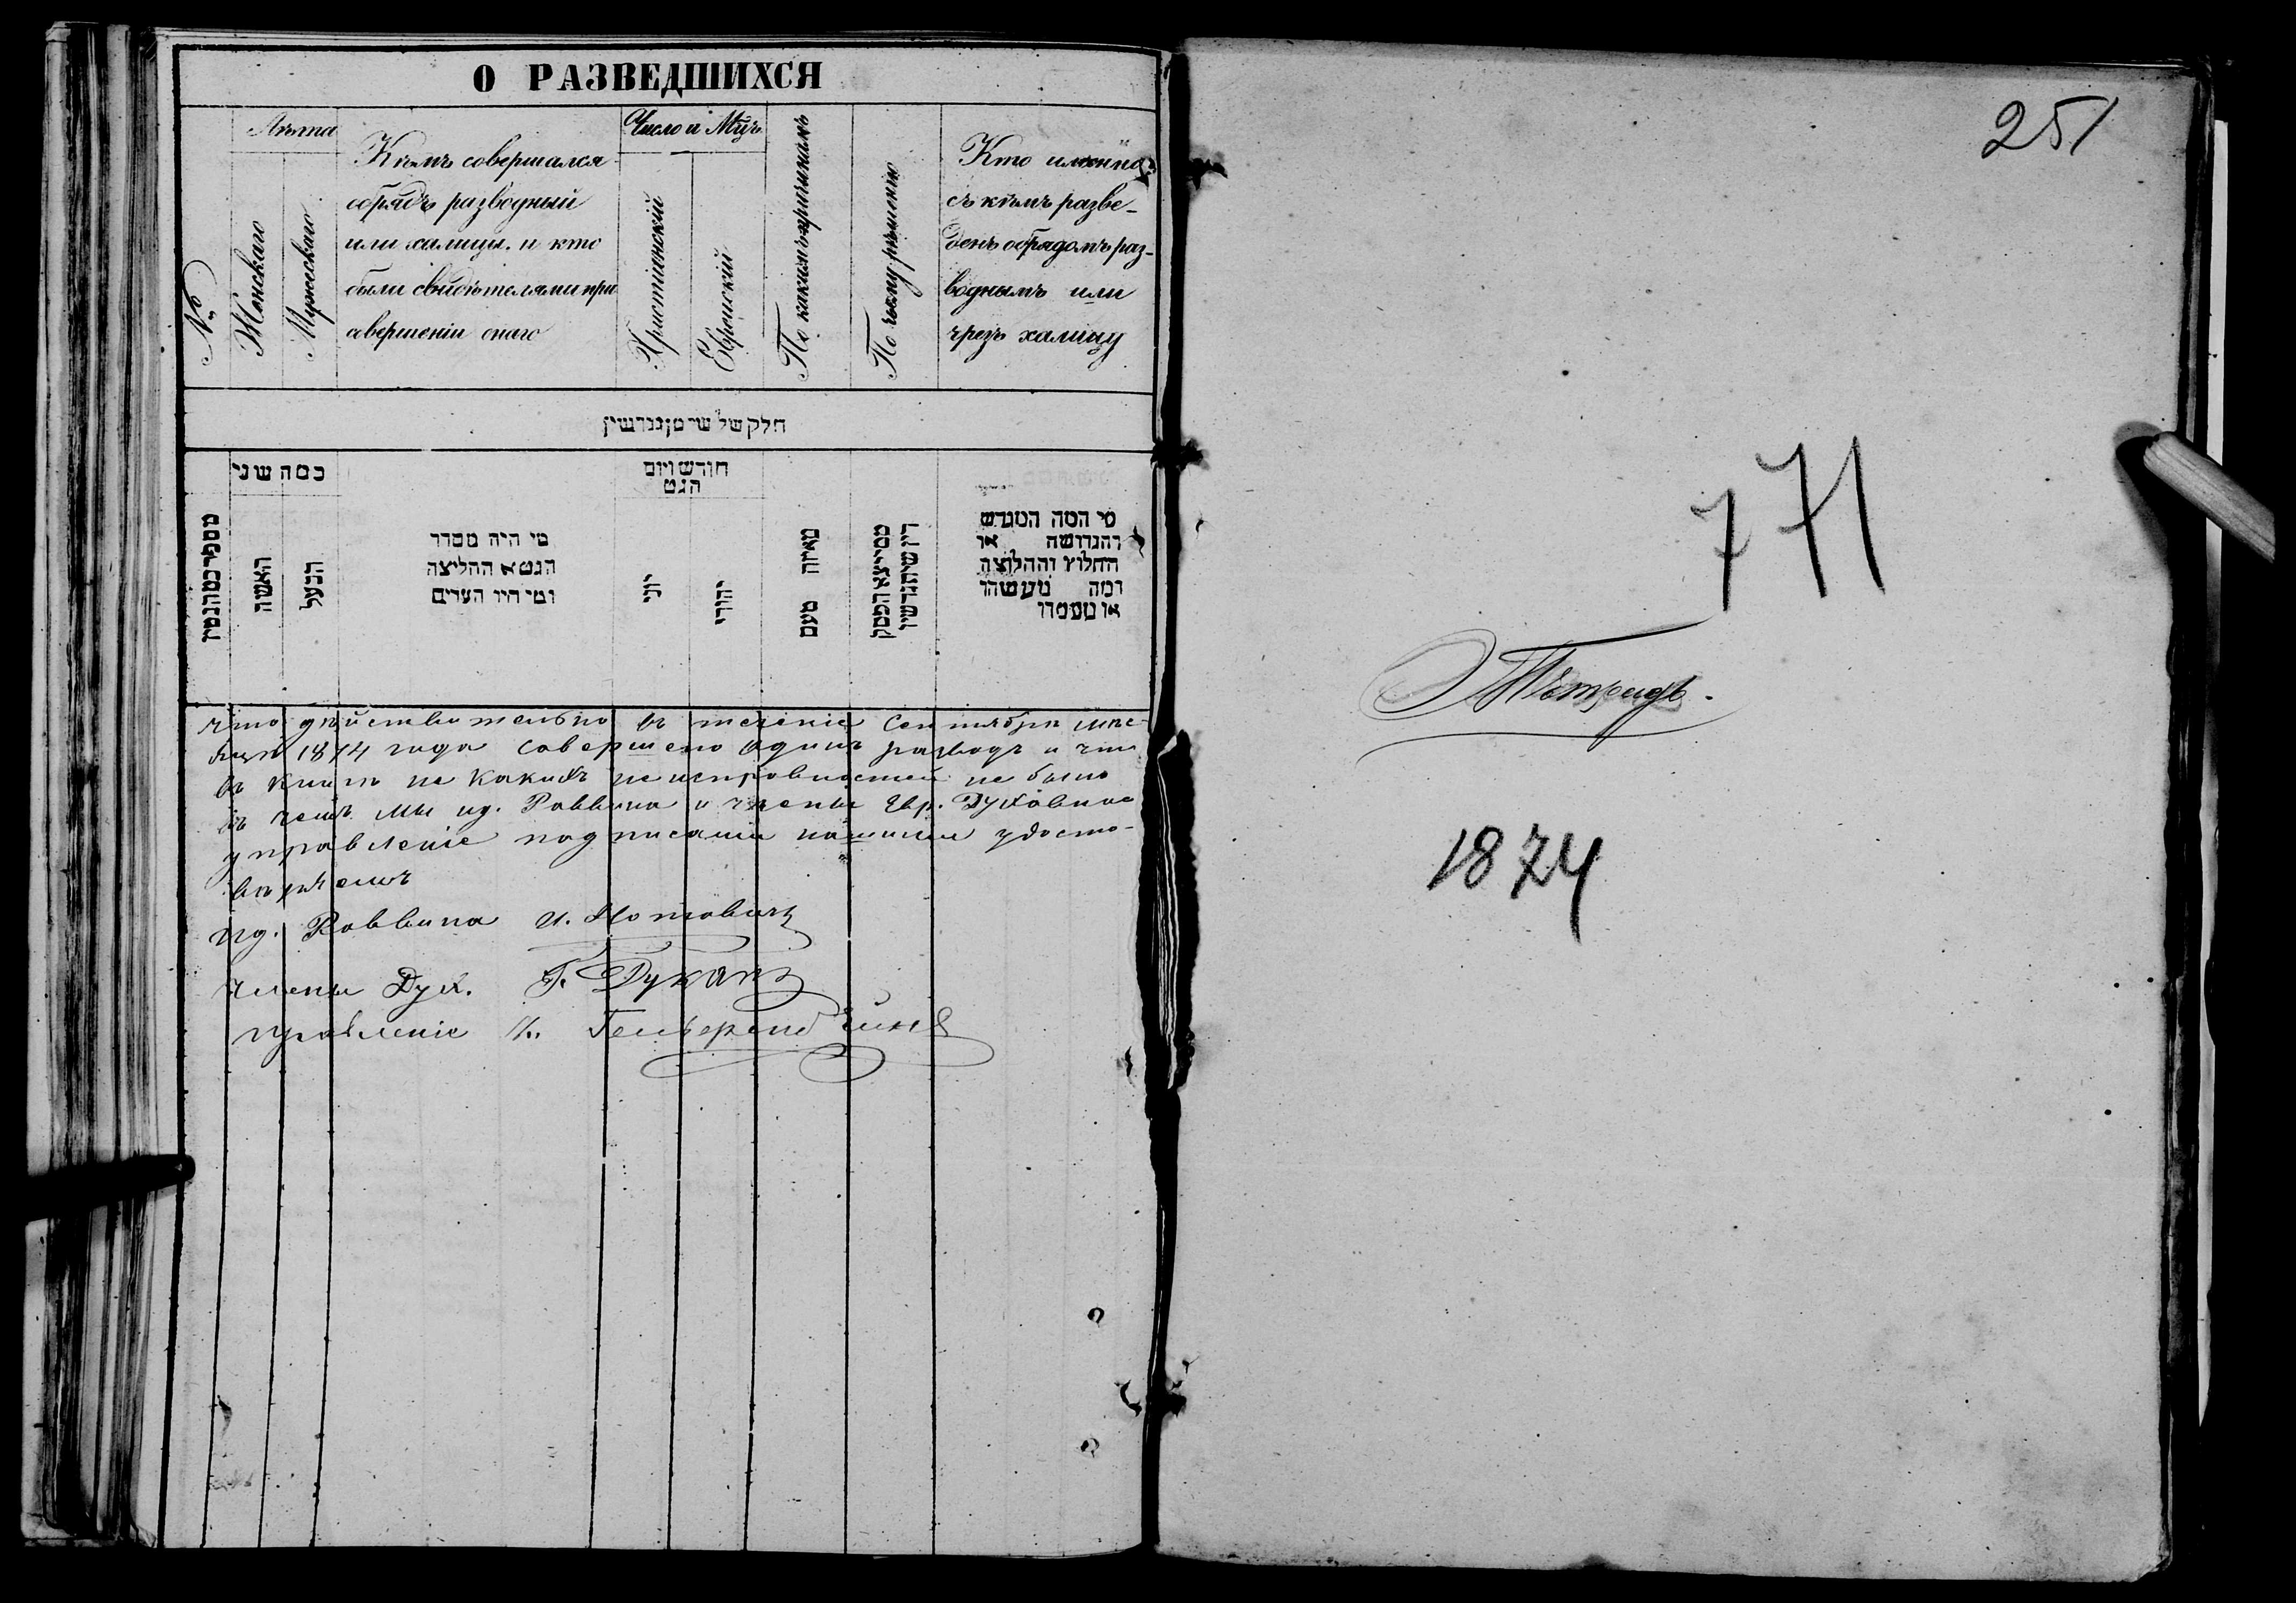 О РАЗВЕДШИХСЯ
№
Лѣта
Женскаго
Мужескаго
Кѣмъ совершался
обрядъ разводный
или халицы. и кто
были свидѣтелями при
совершеніи онаго
Число и Мцъ
Христіянскій
Еврейскій
По какимъ причинамъ
По чьему рѣшенію
Кто именно
съ кѣмъ разве-
денъ обрядомъ раз-
воднымъ или
чрезъ халицу
חלק של שרטן גנרשין
כמה שני
האשה
הבעל
מי היה מסדר
הגט א החליצה
ומי היו העדים
חורש ויום
הגט
יוני
יהודי
מאיזה טעם
מי המה המגרש
והגרושה או
החלוץ והחלוצה
ומה
או
что дѣйствительно въ теченіе Сентября мѣс-
яца 1874 года совершено одинъ разводъ и что
въ книгѣ не какихъ неисправностей не было
въ чемъ мы ид. Раввина и члены Евр. Духовнаго
управленіе подписами нашими удосто-
вѣряемъ
ид. Раввина И. Нотовичъ
члены Дух. Г. Дуканъ
правленіе
251
771
Тетрадь.
1874